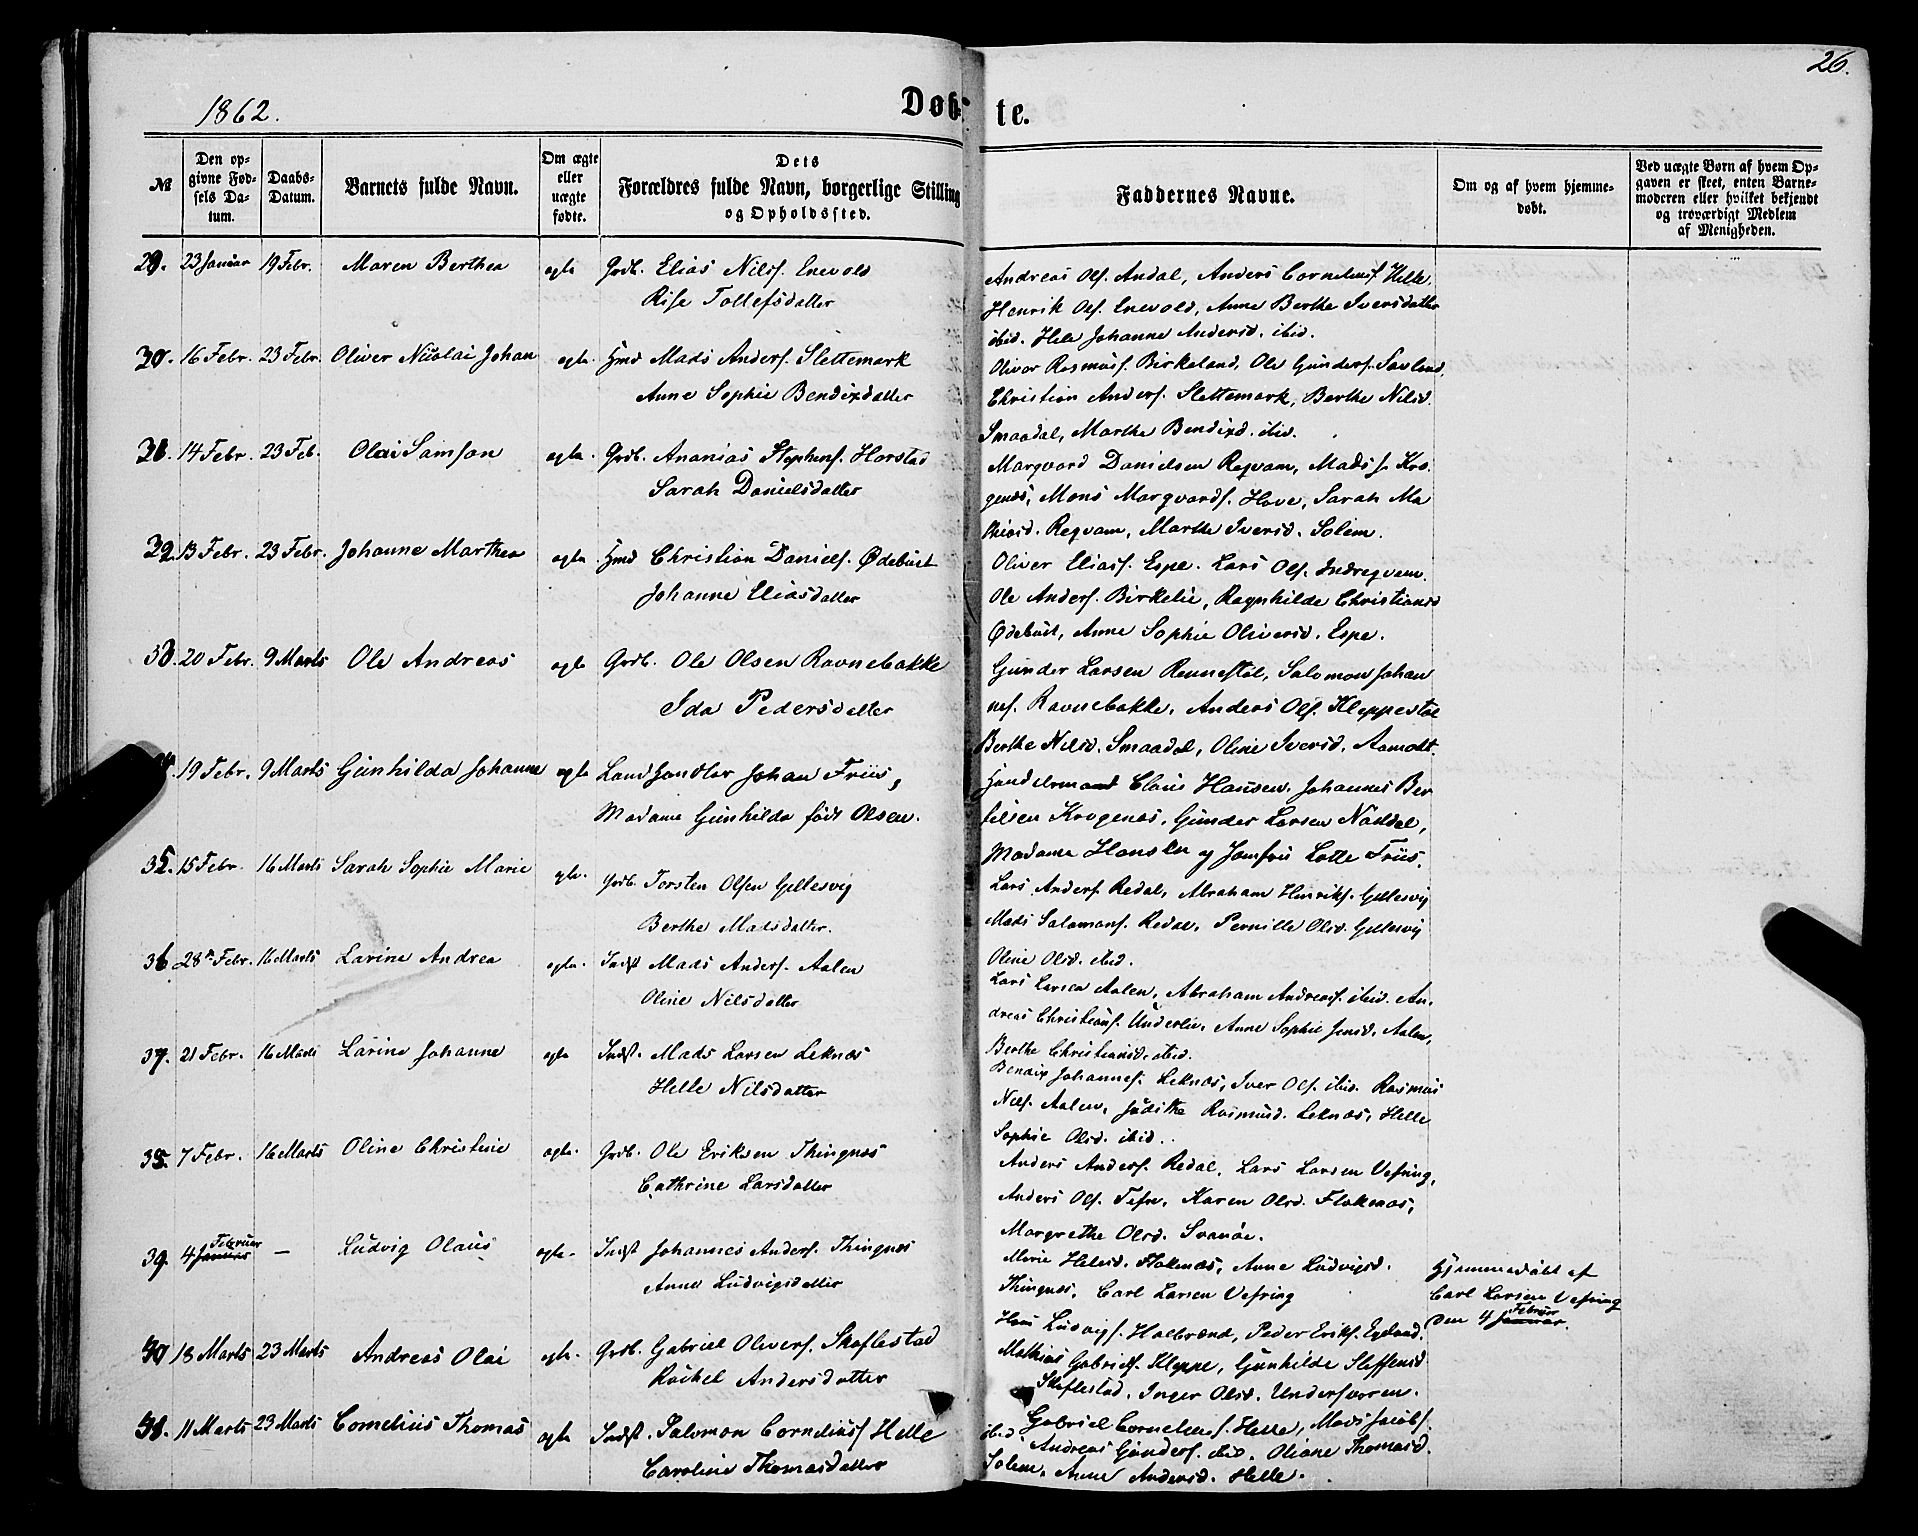 26.
1862.
Døb- te.
№
Den op-
givne Fød-
sels Da-
tum.
Daabs-
Datum.
Barnets fulde Navn.
Om ægte
eller
uægte
fødte.
Dets
Forældres fulde Navn, borgerlige Stilling
og Opholdssted.
Faddernes Navne.
Om og af hvem hjemme-
døbt.
Ved uægte Børn af hvem Op-
gaven er skeet, enten Barne-
moderen eller hvilket bekjendt
og troværdigt Medlem
af Menigheden.
29. 23 Januar 19 Febr. Maren Berthea ægte Grdb. Elias Nilss. Enevold
Rise Tollefsdatter
Andreas Ols. Andal, Anders Corneliuss. Helle,
Henrik Ols. Enevold, Anne Berthe Iversdatter
ibid. Hele Johanne Andersd. ibid.
30. 16 Febr. 23 Febr. Oliver Nicolai Johan ægte. Hmd Mads Anders. Slettemark
Anne Sophie Bendixdatter
Oliver Rasmuss. Birkeland, Ole Gunders. Savland,
Christian Anders. Slettemark, Berthe Nilsd.
Smaadal, Marthe Bendixd. ibid.
31. 14 Febr. 23 Feb. Olai Samson ægte. Grdb. Ananias Stephens. Horstad
Sarah Danielsdatter
Marqvard Danielsen Reqvam, Mads J. Kro-
genæs, Mons Marqvards. Hove, Sarah Ma
thiasd. Reqvam, Marthe Iversd. Solem.
32. 13 Febr. 23 Febr. Johanne Marthea ægte Hmd Christian Daniels. Ødebust
Johanne Eliasdatter
Oliver Eliass. Espe. Lars Ols. Indreqvam.
Ole Anders. Birkelie, Ragnhilde Christiansd
Ødebust, Anne Sophie Oliversd. Espe.
33. 20 Febr. 9 Marts Ole Andreas ægte Grdb. Ole Olsen Ravnebakke
Ida Pedersdatter
Gunder Larsen Rennestøl, Salomon Johan
nes. Ravnebakke, Anders Ols. Kleppestøl
Berthe Nilsd. Smaadal, Oline Iversd. Aamodt.
34. 19 Febr. 9 Marts Gunhilda Johanne ægte Landhandler Johan Friis,
Madame Gunhilda født Olsen.
Handelsmand Claus Hansen, Johannes Ber
telsen Krogenæs, Gunder Larsen Naddal,
Madame Hansen og Jomfru Lotte Friis.
35. 15 Febr. 16 Marts Sarah Sophie Marie ægte. Grdb. Torsten Olsen Gellesvig
Berthe Madsdatter.
Lars Anders. Redal, Abraham Henriks. Gellesvig
Mads Salomons. Redal, Pernille Olsd. Gellesvig
Oline Olsd. ibid.
36. 28de Febr. 16 Marts Larine Andrea ægte. Indst Mads Anders. Aalen
Oline Nilsdatter
Lars Larsen Aalen, Abraham Andreass. ibid. An-
dreas Christians. Underlie, Anne Sophie Jensd. Aalen,
Berthe Christiansd. ibid.
37. 21 Febr. 16 Marts Larine Johanne ægte Indst. Mads Larsen Leknæs
Helle Nilsdatter
Bendix Johannes. Leknæs, Iver Ols. ibid. Rasmus
Nils. Aalen, Judithe Rasmusd. Leknæs, Helle
Sophie Olsd. ibid.
38. 7 Febr. 16 Marts Oline Christine ægte. Grdb. Ole Eriksen Thingnæs
Cathrine Larsdatter
Anders Anders. Redal, Lars Larsen Vefring,
Anders Ols. Tefre, Karen Olsd. Flokenæs,
Margrethe Olsd. Svanøe.
39. 4 Januar Februar — Ludvig Olaus ægte. Indst Johannes Anders. Thingnæs
Anne Ludvigsdatter
Marie Helesd. Flokenæs, Anne Ludvigsd.
Thingnæs, Carl Larsen Vefring
Hjemmedøbt af
Carl Larsen Vefring
den 4 Januar. Februar
40 18 Marts 23 Marts Andreas Olai ægte. Grdb. Gabriel Olivers. Skaflestad
Rachel Andersdatter
Hans Ludvigs. Halbrend, Peder Eriks. Egeland.
Mathias Gabriels. Kleppe, Gunhilde Steffensd
Skaflestad, Inger Olsd.
41. 11 Marts 23 Marts Cornelius Thomas ægte Indst. Salomon Corneliuss Helle
Caroline Thomasdatter
Gabriel Corneliuss. Helle, Mads Jacobs.
ibid Andreas Gunders. ibid. Oliane Thomasd.
Solem, Anne Andersd. Helle.